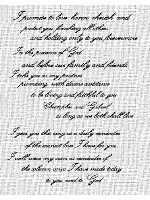 I promise to love honor cherish and
protect you forsaking all others
and holding only to you forevermore
In the presence of God
and before our family and friends
I take you as my partner
promising with divine assistance
to be loving and faithful to you
as long as we both shall live
I give you this ring as a daily reminder
of the eternal love I have for you
I will wear my own as reminder of
the eternal vows I have made today
to you and to God